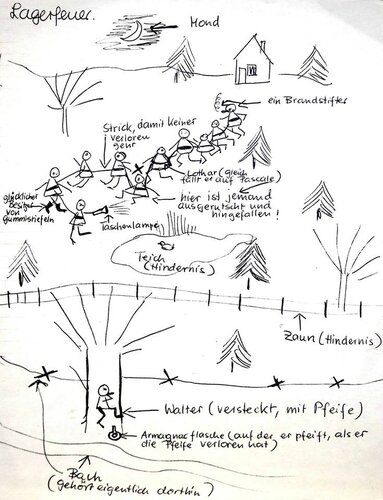 Lagerfeuer.
Mond
ein Brandstifter
Strick, damit keiner
verloren
geht
Lothar (gleich
fällt er auf Pascale)
glücklicher
Besitzer
von
Gummistiefeln
hier ist jemand
ausgerutscht und
hingefallen!
Taschenlampe
Teich
(Hindernis)
Zaun (Hindernis)
Walter (versteckt, mit Pfeife)
Armagnacflasche (auf der er pfeift, als er
die Pfeife verloren hat)
Bach
(gehört eigentlich dorthin)